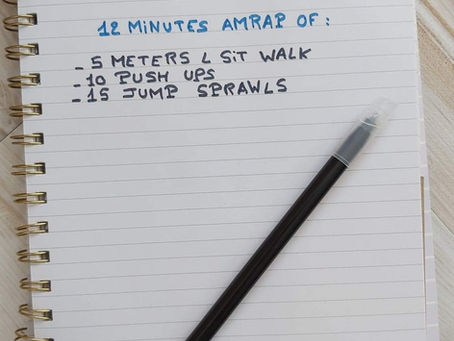 12 MINUTES AMRAP OF :
- 5 METERS L SIT WALK
- 10 PUSH UPS
- 15 JUMP SPRAWLS